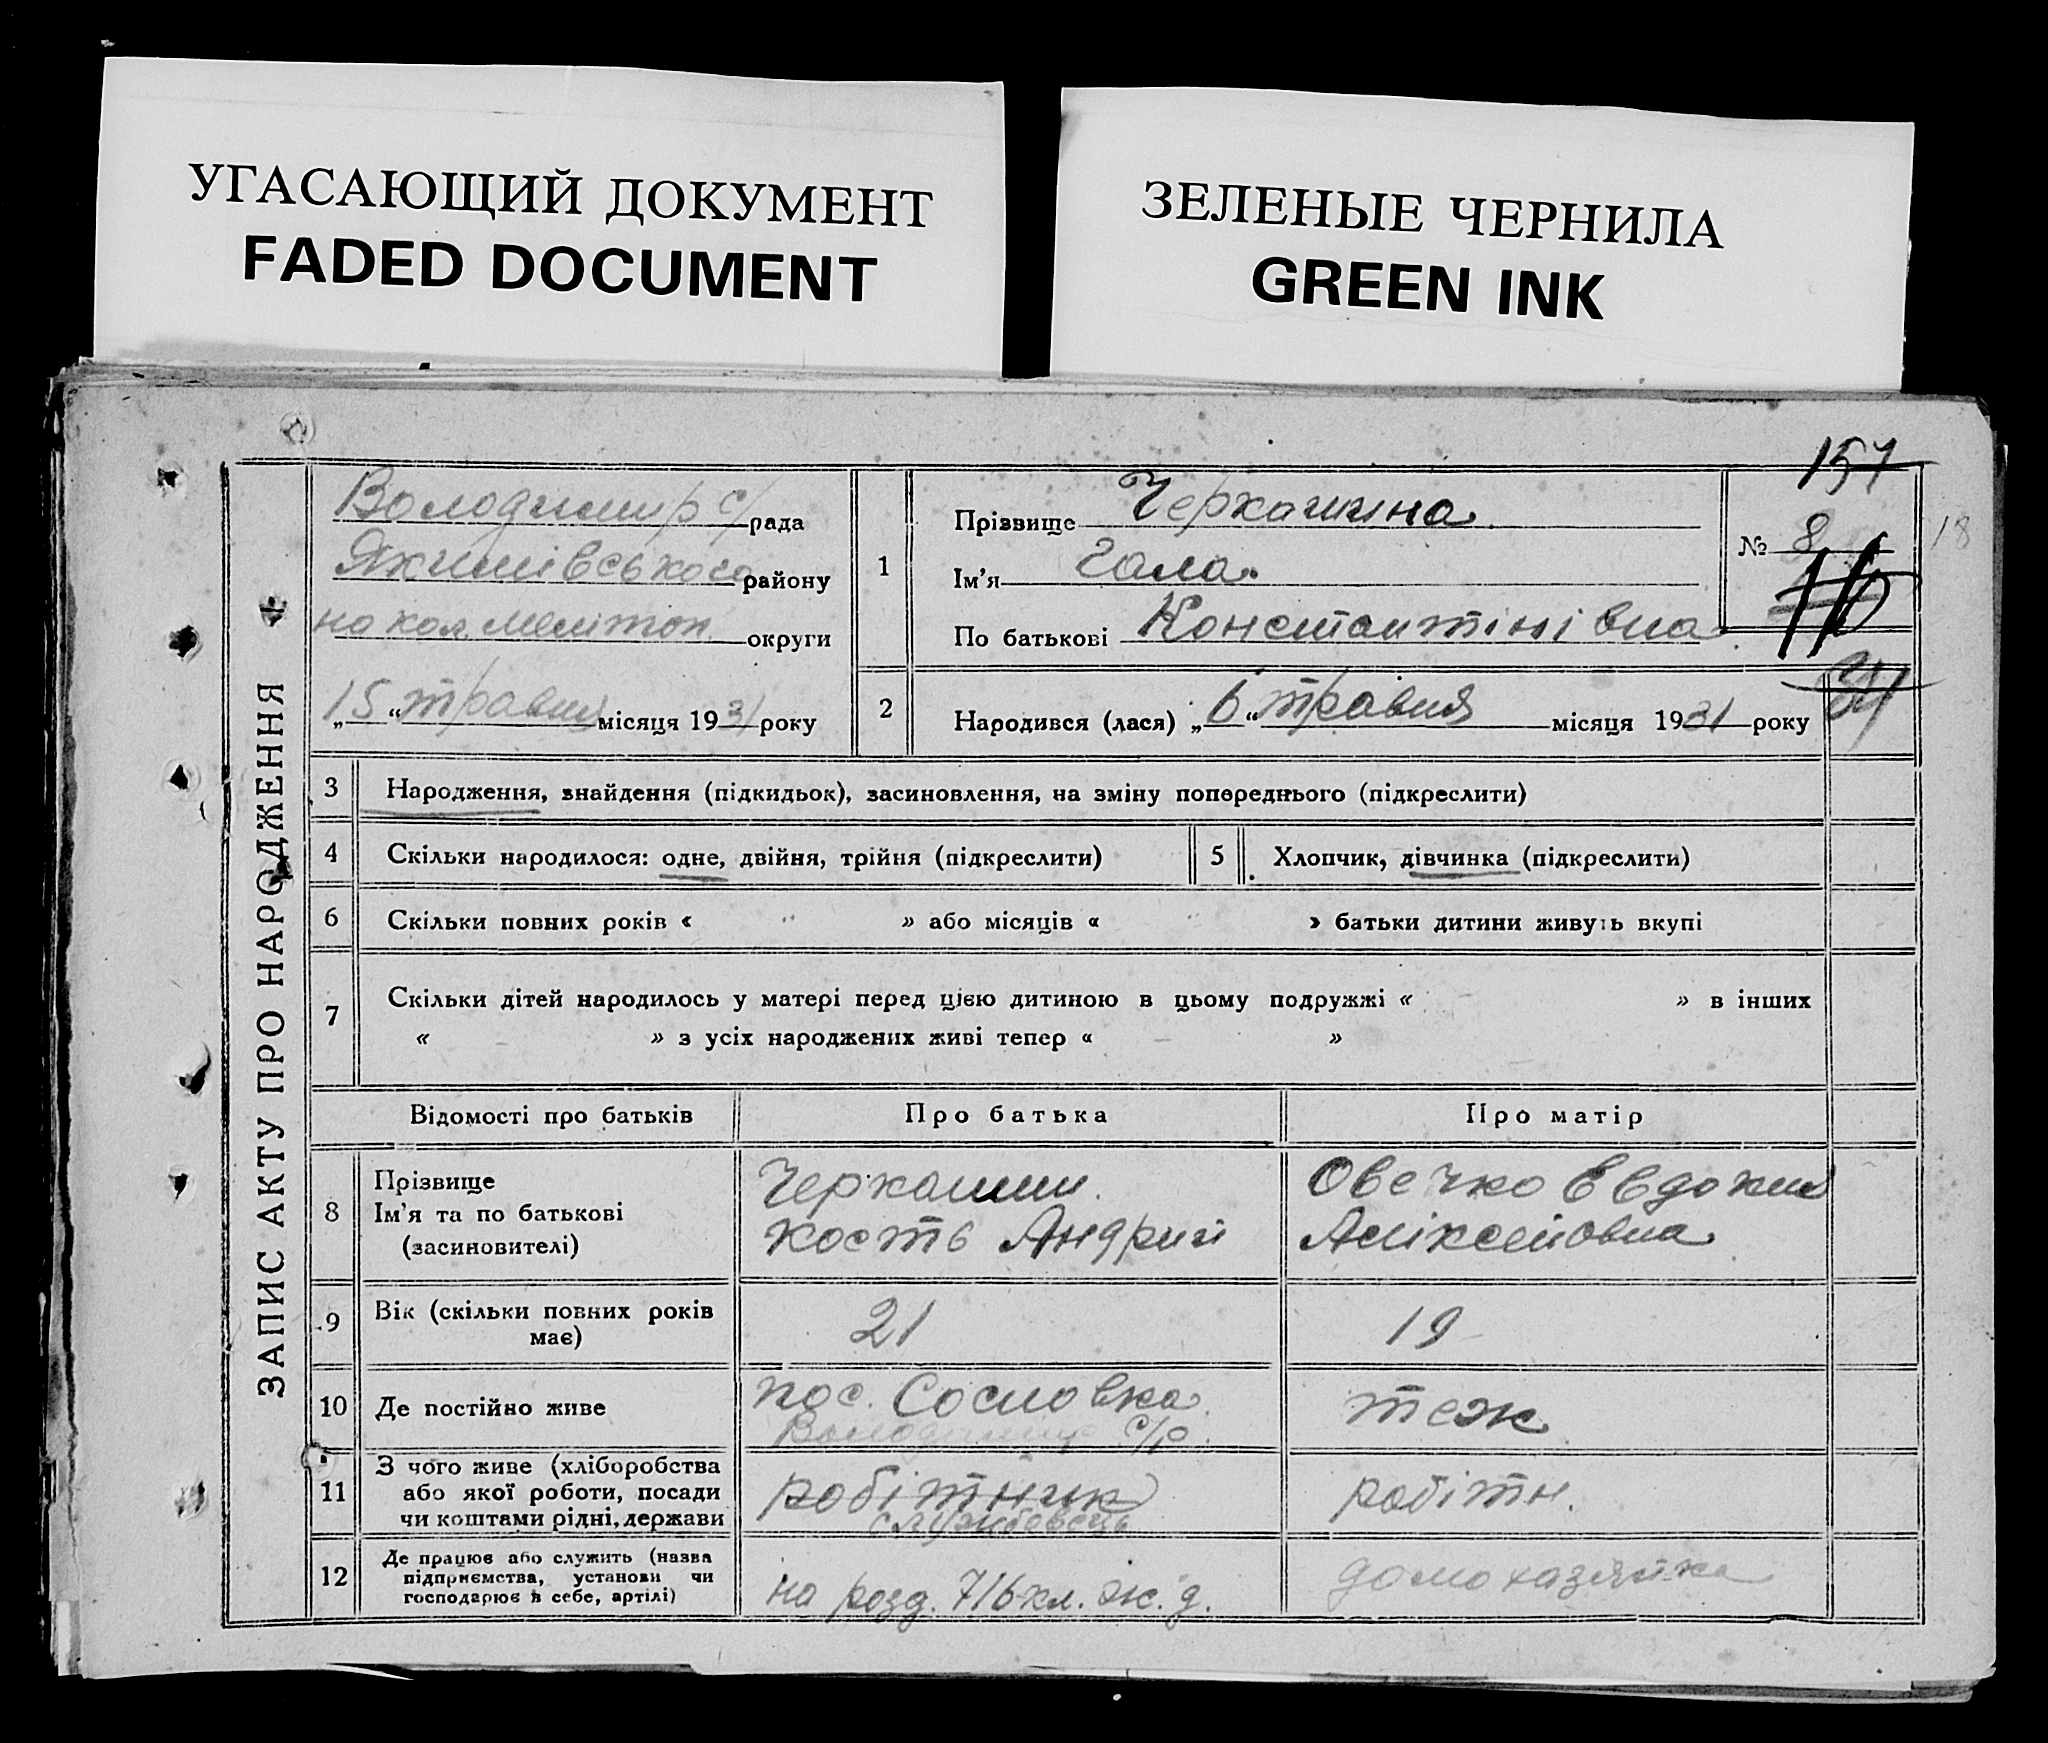 УГАСАЮЩИЙ ДОКУМЕНТ
FADED DOCUMENT
ЗЕЛЕНЫЕ ЧЕРНИЛА
GREEN INK
ЗАПИС АКТУ ПРО НАРОДЖЕННЯ
Володимир с/рада
Якимівського району
округи
„15“ травня місяця 1931 року
1
Прізвище Черкашина
Ім'я Гала
По батькові Константінівна
157
№ 8
116
18
2
Народився (лася) „6“ травня місяця 1931 року
3 Народження, знайдення (підкидьок), засиновлення, на зміну попереднього (підкреслити)
4 Скільки народилося: одне, двійня, трійня (підкреслити)
5 Хлопчик, дівчинка (підкреслити)
6 Скільки повних років « » або місяців « » батьки дитини живуть вкупі
7 Скільки дітей народилось у матері перед цією дитиною в цьому подружжі « » в інших
« » з усіх народжених живі тепер « »
Відомості про батьків
Про батька
Про матір
8 Прізвище
Ім'я та по батькові
(засиновителі)
Черкашин
Кость Андрий
Овечко Евдокия
Аліксейовна
9 Вік (скільки повних років
має)
21
19
10 Де постійно живе
пос. Сосновка
Володимир с/р.
теж
11 З чого живе (хліборобства
або якої роботи, посади
чи коштами рідні, держави
робітник
службовець
робітн.
12 Де працює або служить (назва
підприємства, установи чи
господарює в себе, артілі)
на розд. 716 кл. ж. д.
домохазяйка